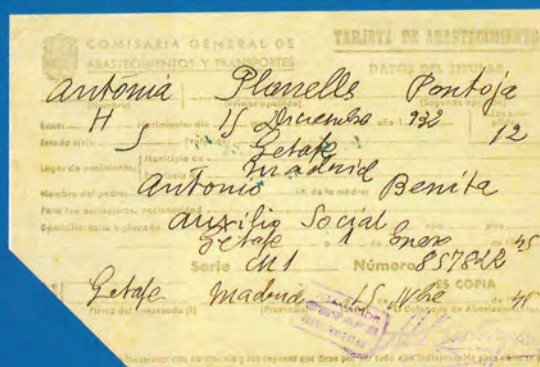 COMISARIA GENERAL DE
ABASTECIMIENTOS Y TRANSPORTES
TARJETA DE ABASTECIMIENTO
DATOS DEL TITULAR
Antonia Planells Pantoja
(Nombre) (Primer apellido) (Segundo apellido)
Sexo: H Nacimiento: día 15 Diciembre año 1.932 12
Estado civil: S
Getafe
Lugar de nacimiento: Municipio de
Provincia de Madrid
Nombre del padre: Antonio Id. de la madre: Benita
Para los extranjeros, nacionalidad
Domicilio: calle o plaza de Auxilio Social núm. piso
Getafe a 1 de Enero de 45
Serie CM1 Número 857822
ES COPIA
Getafe Madrid 15 Nbre de 45
Firma del interesado (1) (Provincia) El Delegado de Abastecimientos